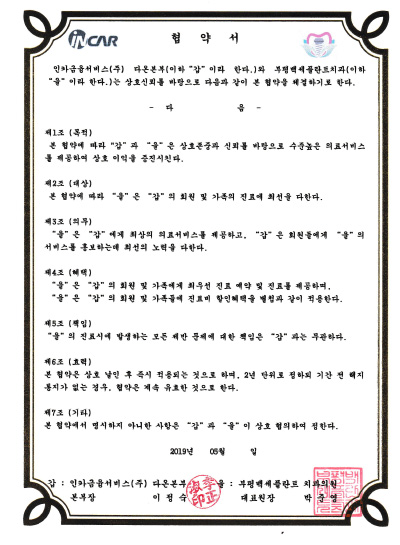 INCAR
협 약 서
인카금융서비스(주) 다온본부(이하 "갑"이라 한다.)와 부평백세플란트치과(이하
"을"이라 한다.)는 상호신뢰를 바탕으로 다음과 같이 본 협약을 체결하기로 한다.
- 다 음 -
제1조 (목적)
본 협약에 따라 "갑"과 "을"은 상호존중과 신뢰를 바탕으로 수준높은 의료서비스
를 제공하여 상호 이익을 증진시킨다.
제2조 (대상)
본 협약에 따라 "을"은 "갑"의 회원 및 가족의 진료에 최선을 다한다.
제3조 (의무)
"을"은 "갑"에게 최상의 의료서비스를 제공하고, "갑"은 회원들에게 "을"의
서비스를 홍보하는데 최선의 노력을 다한다.
제4조 (혜택)
"을"은 "갑"의 회원 및 가족에게 최우선 진료 예약 및 진료를 제공하며,
"을"은 "갑"의 회원 및 가족들에 진료비 할인혜택을 별첨과 같이 적용한다.
제5조 (책임)
"을"의 진료시에 발생하는 모든 제반 문제에 대한 책임은 "갑"과는 무관하다.
제6조 (효력)
본 협약은 상호 날인 후 즉시 적용되는 것으로 하며, 2년 단위로 정하되 기간 전 해지
통지가 없는 경우, 협약은 계속 유효한 것으로 한다.
제7조 (기타)
본 협약에서 명시하지 아니한 사항은 "갑"과 "을"이 상호 협의하여 정한다.
2019년 05월 일
갑 : 인카금융서비스(주) 다온본부 을 : 부평백세플란트 치과의원
본부장 이 정 숙 대표원장 박 준 영